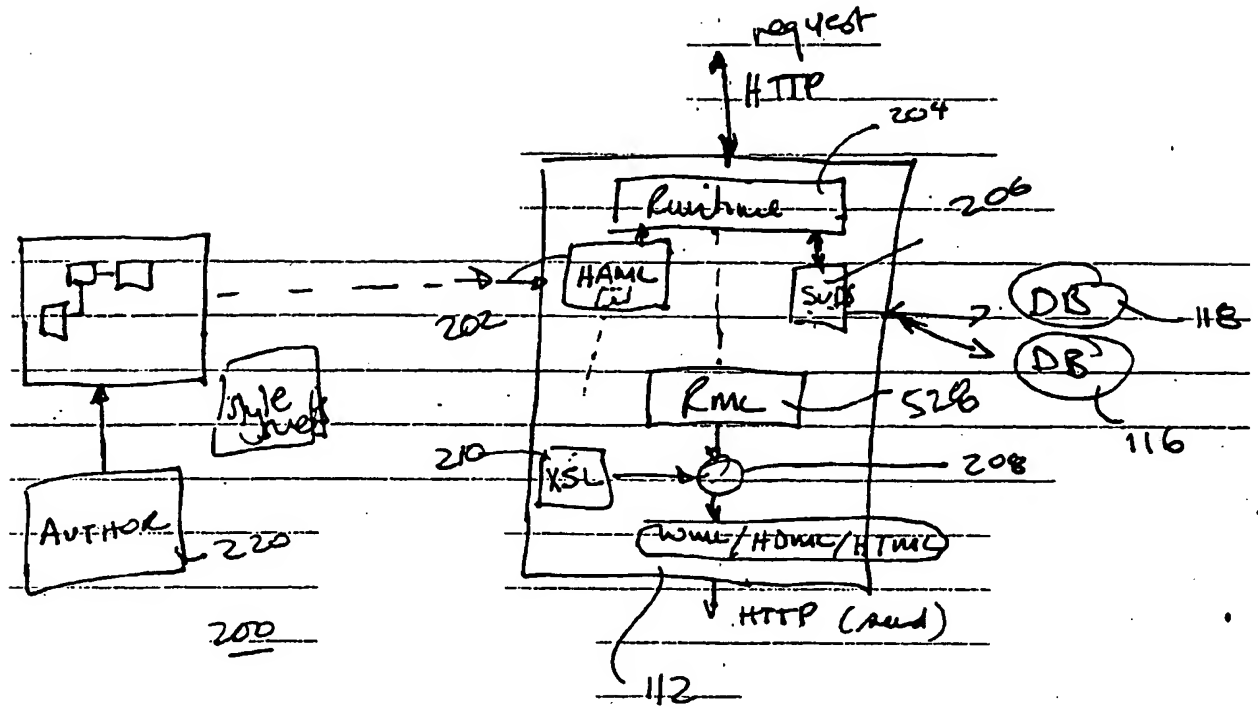 request
HTTP
204
Runtime
206
HAML
SVDS
DB
118
202
DB
Style
Sheet
RML
528
116
210
XSL
208
AUTHOR
220
WML/HDML/HTML
HTTP (send)
200
112